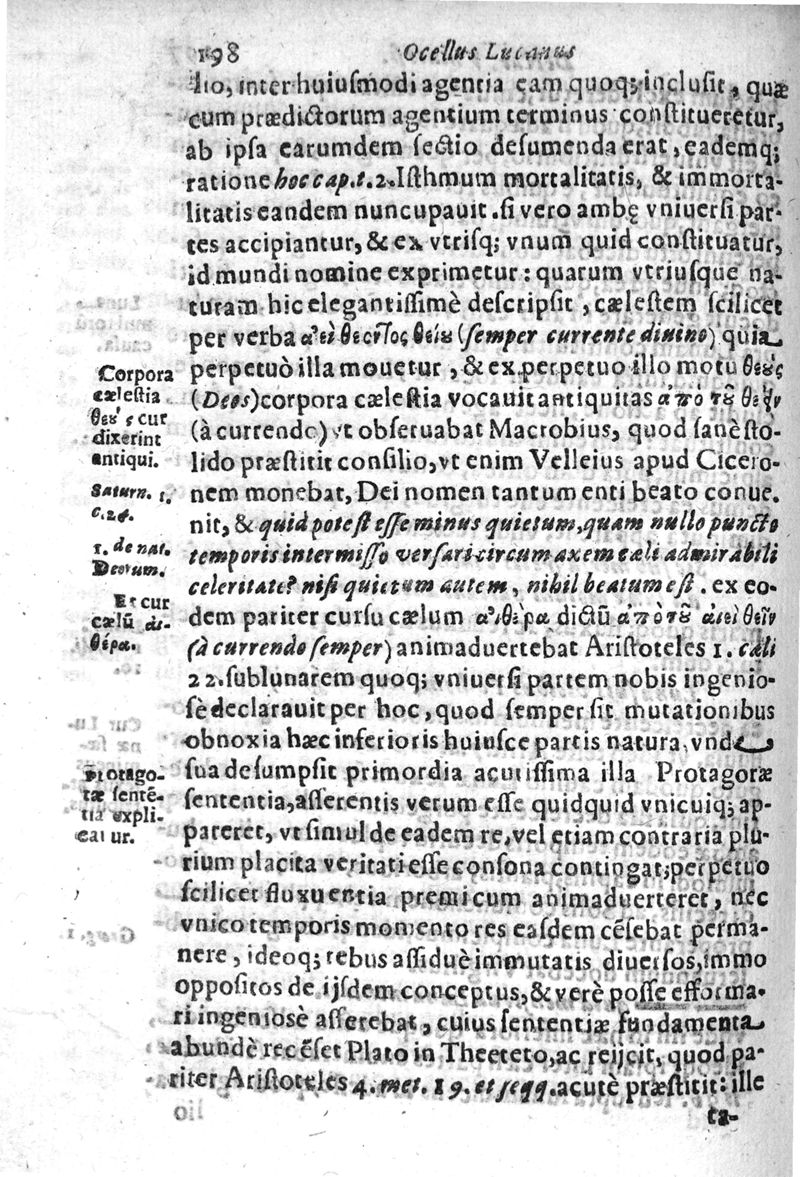 198 Ocellus Lucanus
lio, inter huiusmodi agentia eam quoq; inclusit, quæ
cum prædictorum agentium terminus constitueretur,
ab ipsa earumdem sectio desumenda erat, eademq;
ratione hoc cap. t. 2. Isthmum mortalitatis, & immorta-
litatis eandem nuncupauit. si vero ambę vniuersi par-
tes accipiantur, & ex vtrisq; vnum quid constituatur,
id mundi nomine exprimetur: quarum vtriusque na-
turam hic elegantissimè descripsit, cælestem scilicet
per verba (semper currente diuino) quia
perpetuò illa mouetur, & ex perpetuo illo motu θεοὺς
(Deos) corpora cælestia vocauit antiquitas ἀπὸ τοῦ θεῖν
(à currendo) vt obseruabat Macrobius, quod sanè sto-
lido præstitit consilio, vt enim Velleius apud Cicero-
nem monebat, Dei nomen tantum enti beato conue-
nit, & quid potest esse minus quietum, quam nullo puncto
temporis intermisso versari circum axem cæli admirabili
celeritate? nisi quietum autem, nihil beatum est. ex eo-
dem pariter cursu cælum αἰθέρα dictū ἀπὸ τοῦ ἀεὶ θεῖν
(à currendo semper) animaduertebat Aristoteles 1. cæli
22. sublunarem quoq; vniuersi partem nobis ingenio-
sè declarauit per hoc, quod semper sit mutationibus
obnoxia hæc inferioris huiusce partis natura, vnde
sua desumpsit primordia acutissima illa Protagoræ
sententia, asserentis verum esse quidquid vnicuiq; ap-
pareret, vt simul de eadem re, vel etiam contraria plu-
rium placita veritati esse consona contingat; perpetuo
scilicet fluxu entia premi cum animaduerteret, nec
vnico temporis momento res easdem cēsebat perma-
nere, ideoq; rebus assiduè immutatis diuersos, immo
oppositos de ijsdem conceptus, & verè posse efforma-
ri ingeniosè asserebat, cuius sententiæ fundamenta
abundè recēset Plato in Theeteto, ac reijcit, quod pa-
riter Aristoteles 4. met. 19. et seqq. acutè præstitit: ille
ta-
Corpora
cælestia
θεοὺς cur
dixerint
antiqui.
Saturn. 1.
c. 24.
1. de nat.
Deorum.
Et cur
cælū αἰ-
θέρα.
Protago-
ræ sentē-
tia expli-
catur.